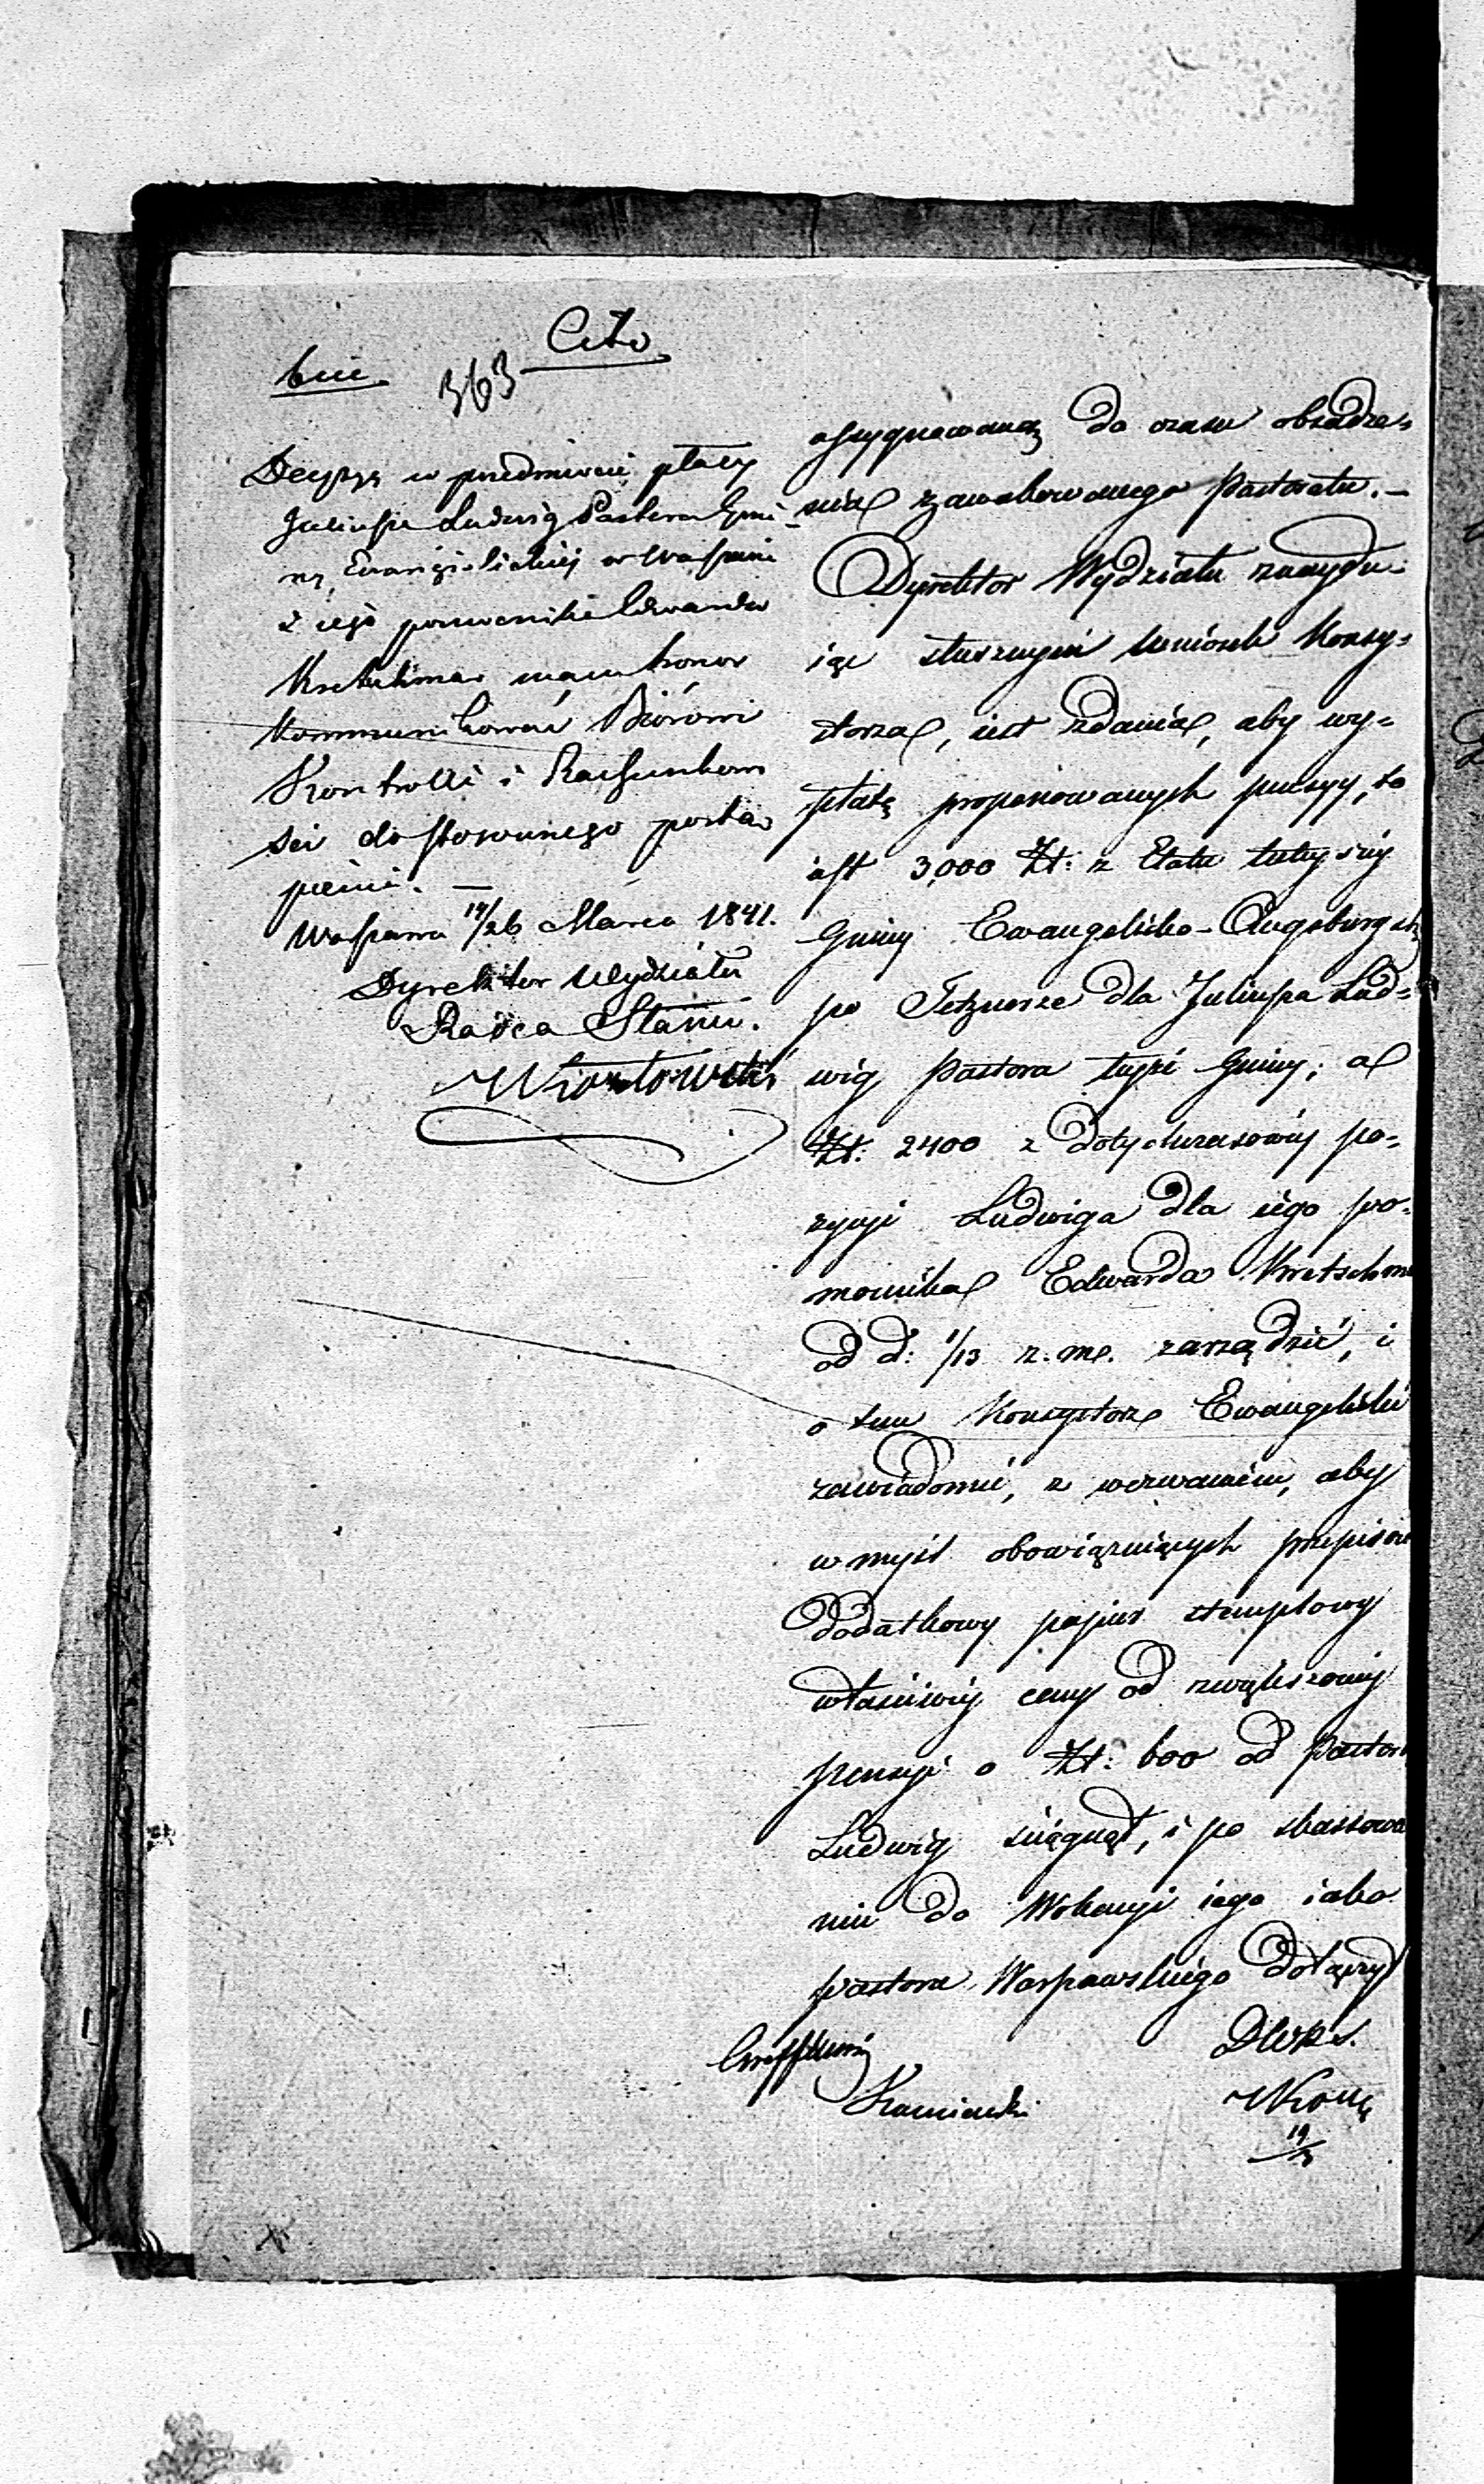 Cito
363
Decyzyą w przedmiocie płacy
Juliusza Ludwig Pastora Gmi-
ny Ewangielickiej w Warszawie
i iego pomocnika Edwarda
Kretschmar mam honor
Kommunikować Biórowi
Kontrolli i Rachunkowo
ści do stosownego postą
pienia. —
Warszawa 14/26 Marca 1841.
Dyrektor Wydziału
Radca Stanu.
assygnowaną do czasu obsadze-
nia zawakowanego Pastoratu. —
Dyrektor Wydziału znaydu-
iąc słusznym wniosek Konsy-
storza, iest zdania, aby wy-
płatę proponowanych pensyy, to
iest 3,000 Zł: z Etatu tuteyszey
Gminy Ewangelicko-Augsburgsk
po Tetznerze dla Juliusza Lud-
wig Pastora teyże Gminy; a
Zł: 2400 z dotychczasowey po-
zycyi Ludwiga dla iego po-
mocnika Edwarda Kretschma
od d: 1/13 z. m. zarządzić, i
o tem Konsystorz Ewangelicki
zawiadomić, z wezwaniem, aby
w myśl obowiązuiących przepisów
dodatkowy papier stemplowy
właściwey ceny od zwiększoney
pensyi o Zł: 600 od Pastora
Ludwig ściągnął, i po skassowa
niu do Wokacyi iego iako
pastora Warszawskiego dołączył
Kamieński
19/3